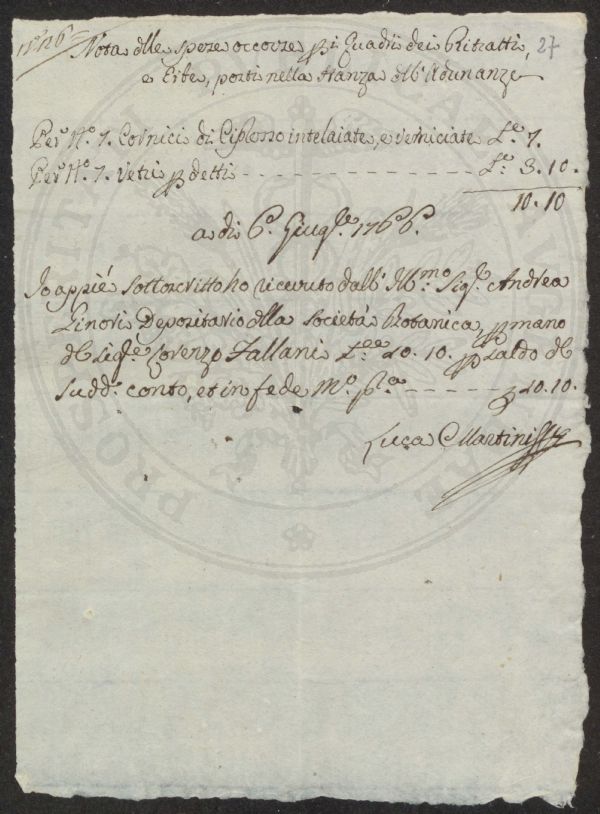 N.º 126 27
Nota delle speze occorse p i Quadri dei Ritratti,
e Erbe, posti nella stanza dell'Adunanze
Per N.º 7. Cornici di Cipresso intelaiate, e verniciate L.e 7.
Per N.º 7. vetri p detti - - - - - - - - - - L.e 3. 10.
10. 10
a di 6. Giug.º 1766.
Io appiè sottoscritto ho ricevuto dall' Ill.mo Sig.e Andrea
Ginori Depositario della Società Botanica, p mano
del Sig.e Lorenzo Fallani L.ee 10. 10. p saldo del
sudd.º conto, et in fede M.º p.a - - - - - - 10. 10.
Luca Martini